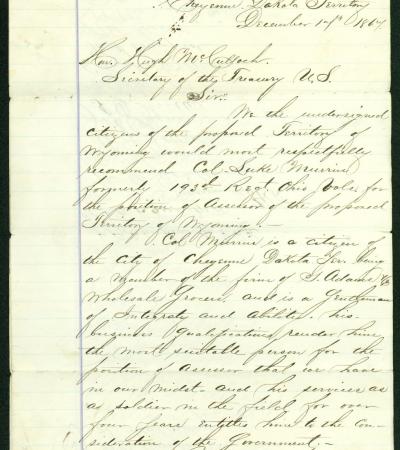 Cheyenne, Dakota Territory
December 17th 1867
Hon. Hugh McCulloch.
Secretary of the Treasury U.S.
Sir:
We the undersigned
citizens of the proposed Territory of
Wyoming would most respectfully
recommend Col. Luke Murrin
formerly 193rd Regt. Ohio Vols. for
the position of Assessor of the proposed
Territory of Wyoming.—
Col. Murrin is a citizen of
the City of Cheyenne Dakota Ter. being
a member of the firm of J. Adams & Co
Wholesale Grocers, and is a Gentleman
of Integrity and Ability. his
business Qualifications render him
the most suitable person for the
position of Assessor that we have
in our midst— and his services as
a soldier in the field for over
four years entitles him to the con-
sideration of the Government.—